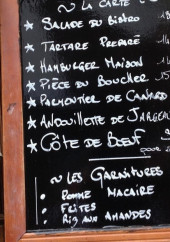 ~ LA CARTE
★ SALADE DU BISTRO
★ TARTARE PREPARÉ
★ HAMBURGER MAISON
★ PIÈCE DU BOUCHER
★ PARMENTIER DE CANARD
★ ANDOUILLETTE DE JARGEAU
★ CÔTE DE BŒUF
~ LES GARNITURES
• POMME MACAIRE
• FRITES
• RIZ AUX AMANDES